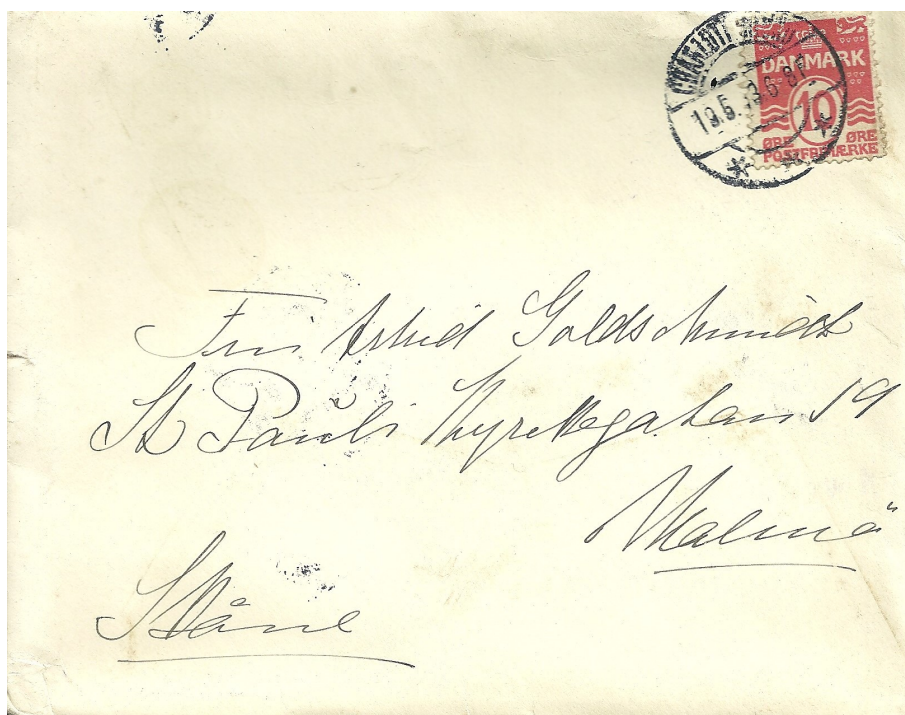 CHARLOTTENLUND
19.5.
DANMARK
10
ØRE ØRE
POSTFRIMÆRKE
Fru Astrid Goldschmidt
St Pauli Kyrkogatan 19
Malmö
Skåne